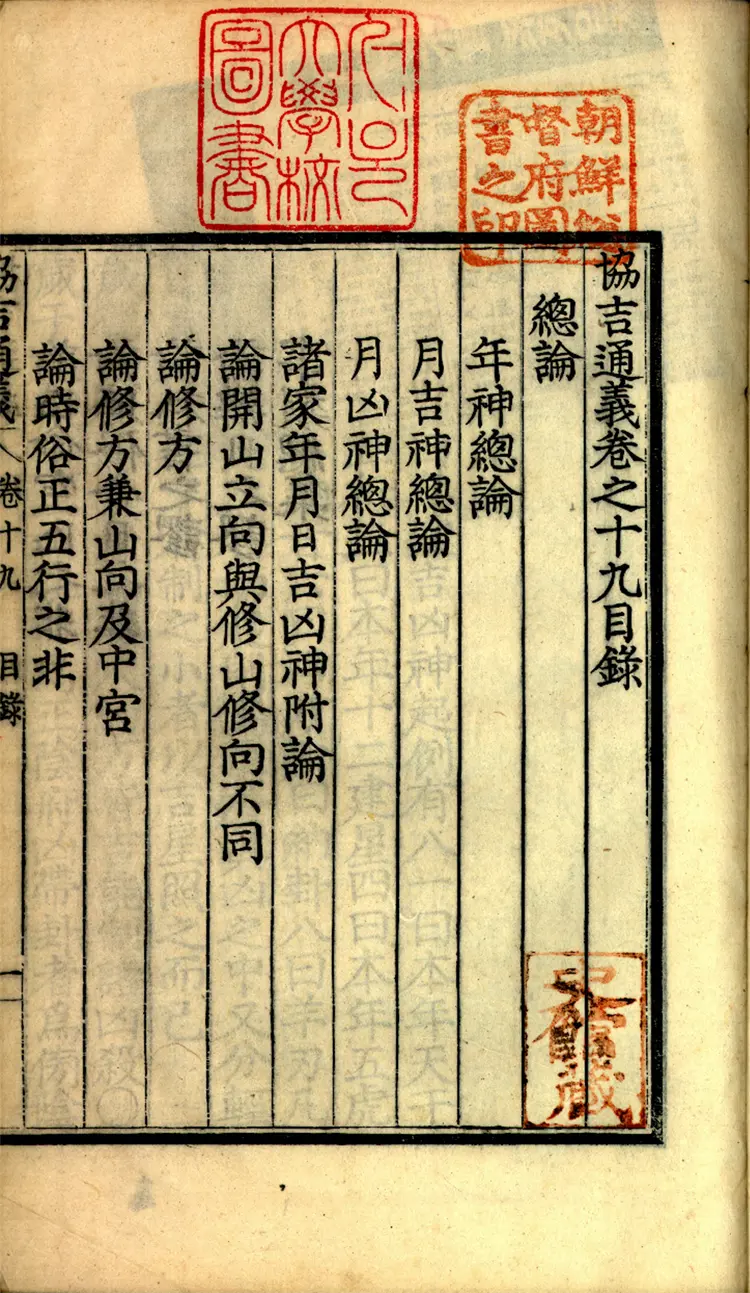 協吉通義卷之十九目錄
總論
年神總論
月吉神總論
月凶神總論
諸家年月日吉凶神附論
論開山立向與修山修向不同
論修方
論修方兼山向及中宮
論時俗正五行之非
協吉通義 卷十九 目錄 一
朝鮮總
督府圖
書之印
大學校
圖書
藏